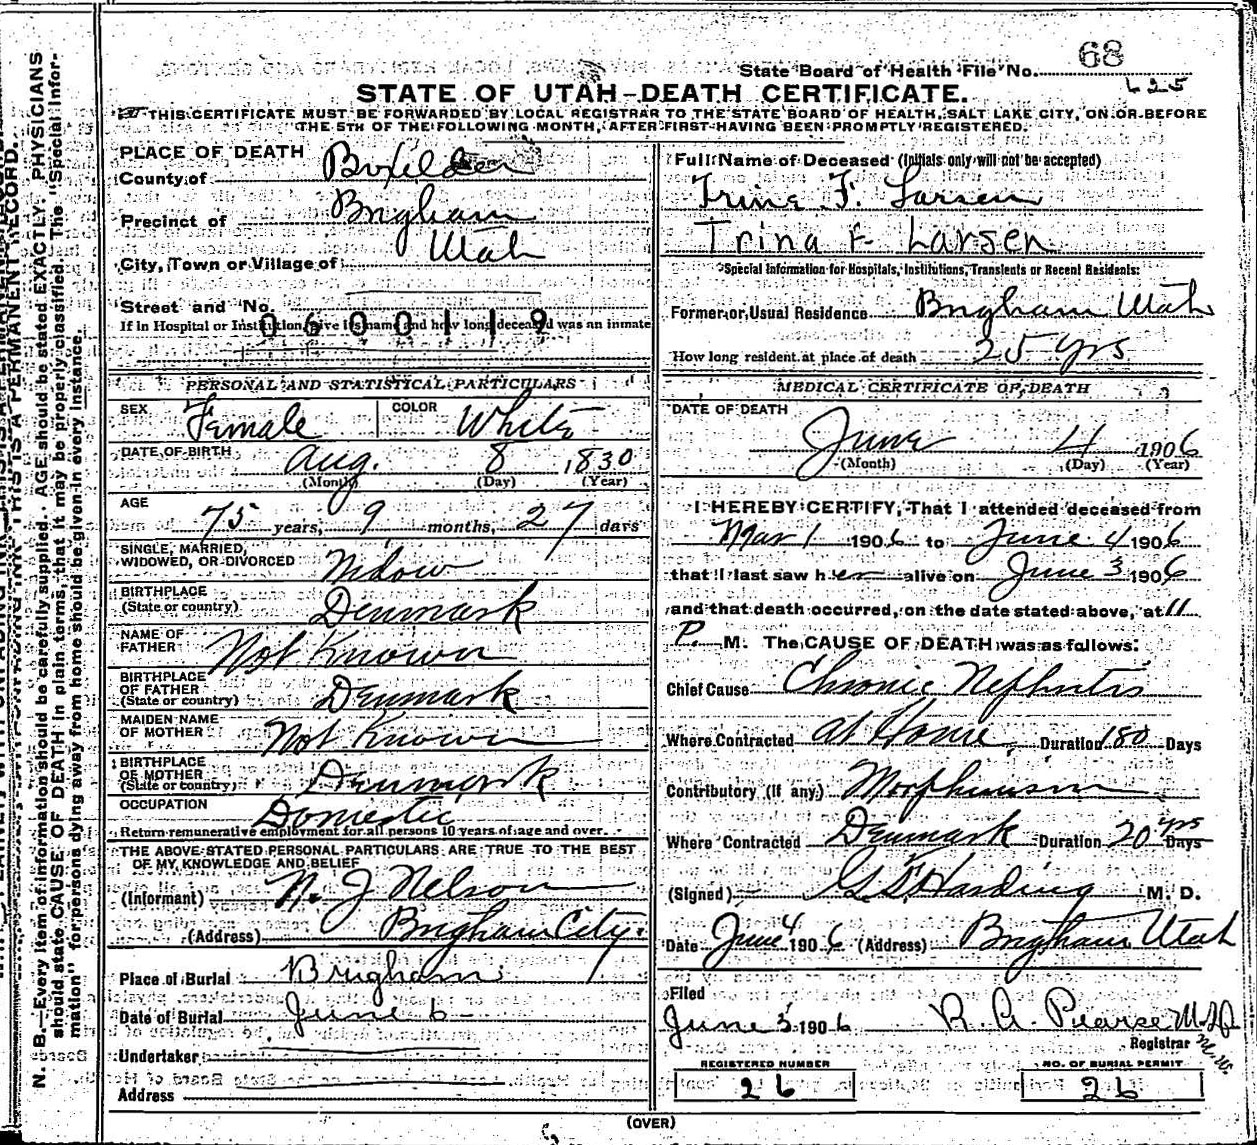 State Board of Health File No. 68
625
STATE OF UTAH-DEATH CERTIFICATE.
THIS CERTIFICATE MUST BE FORWARDED BY LOCAL REGISTRAR TO THE STATE BOARD OF HEALTH, SALT LAKE CITY, ON OR BEFORE
THE 5TH OF THE FOLLOWING MONTH, AFTER FIRST HAVING BEEN PROMPTLY REGISTERED.
PLACE OF DEATH
County of Boxelder
Precinct of Brigham
City, Town or Village of Utah
Street and No.
0600119
If in Hospital or Institution, give its name and how long deceased was an inmate
PERSONAL AND STATISTICAL PARTICULARS
SEX Female COLOR White
DATE OF BIRTH Aug. 8 1830
(Month) (Day) (Year)
AGE 75 years, 9 months, 27 days
SINGLE, MARRIED,
WIDOWED, OR DIVORCED Widow
BIRTHPLACE
(State or country) Denmark
NAME OF
FATHER Not Known
BIRTHPLACE
OF FATHER
(State or country) Denmark
MAIDEN NAME
OF MOTHER Not Known
BIRTHPLACE
OF MOTHER
(State or country) Denmark
OCCUPATION Domestic
Return remunerative employment for all persons 10 years of age and over.
THE ABOVE STATED PERSONAL PARTICULARS ARE TRUE TO THE BEST
OF MY KNOWLEDGE AND BELIEF
(Informant) N. J Nelson
(Address) Brigham City.
Place of Burial Brigham
Date of Burial June 6
Undertaker
Address
Full Name of Deceased (Initials only will not be accepted)
Trine F. Larsen
Trina F. Larsen
Special Information for Hospitals, Institutions, Transients or Recent Residents:
Former or Usual Residence Brigham Utah
How long resident at place of death 25 yrs
MEDICAL CERTIFICATE OF DEATH
DATE OF DEATH
June 4 1906
(Month) (Day) (Year)
I HEREBY CERTIFY, That I attended deceased from
Mar 1 1906 to June 4 1906
that I last saw her alive on June 3 1906
and that death occurred, on the date stated above, at 11
P. M. The CAUSE OF DEATH was as follows:
Chief Cause Chronic Nephritis
Where Contracted at Home Duration 180 Days
Contributory (if any) Morphinism
Where Contracted Denmark Duration 20 yrs Days
(Signed) Harding M. D.
Date June 4 1906 (Address) Brigham Utah
Filed
June 5 1906 R. A. Pearse M.D
Registrar
M.W.
REGISTERED NUMBER
26
NO. OF BURIAL PERMIT
26
(OVER)
N. B.—Every item of information should be carefully supplied. AGE should be stated EXACTLY. PHYSICIANS
should state CAUSE OF DEATH in plain terms, that it may be properly classified. The "Special Infor-
mation" for persons dying away from home should be given in every instance.
THIS IS A PERMANENT RECORD.